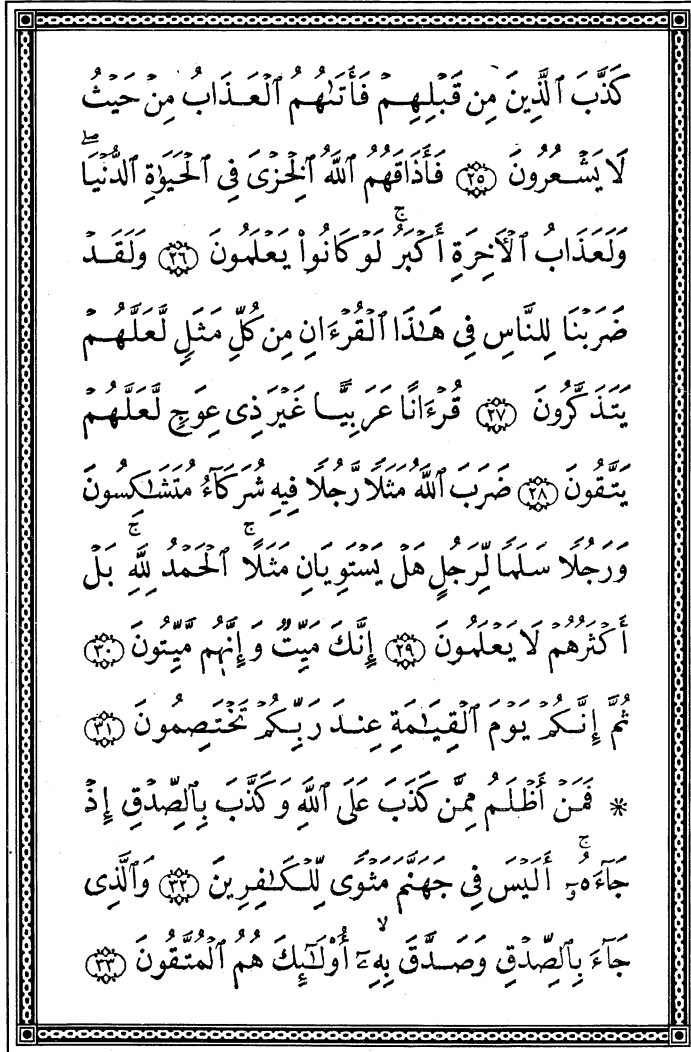 كَذَّبَ ٱلَّذِينَ مِن قَبْلِهِمْ فَأَتَىٰهُمُ ٱلْعَذَابُ مِنْ حَيْثُ
لَا يَشْعُرُونَ ﴿٢٥﴾ فَأَذَاقَهُمُ ٱللَّهُ ٱلْخِزْىَ فِى ٱلْحَيَوٰةِ ٱلدُّنْيَا ۖ
وَلَعَذَابُ ٱلْأَخِرَةِ أَكْبَرُ ۚ لَوْ كَانُوا۟ يَعْلَمُونَ ﴿٢٦﴾ وَلَقَدْ
ضَرَبْنَا لِلنَّاسِ فِى هَـٰذَا ٱلْقُرْءَانِ مِن كُلِّ مَثَلٍ لَّعَلَّهُمْ
يَتَذَكَّرُونَ ﴿٢٧﴾ قُرْءَانًا عَرَبِيًّا غَيْرَ ذِى عِوَجٍ لَّعَلَّهُمْ
يَتَّقُونَ ﴿٢٨﴾ ضَرَبَ ٱللَّهُ مَثَلًا رَّجُلًا فِيهِ شُرَكَآءُ مُتَشَـٰكِسُونَ
وَرَجُلًا سَلَمًا لِّرَجُلٍ هَلْ يَسْتَوِيَانِ مَثَلًا ۚ ٱلْحَمْدُ لِلَّهِ ۚ بَلْ
أَكْثَرُهُمْ لَا يَعْلَمُونَ ﴿٢٩﴾ إِنَّكَ مَيِّتٌ وَإِنَّهُم مَّيِّتُونَ ﴿٣٠﴾
ثُمَّ إِنَّكُمْ يَوْمَ ٱلْقِيَـٰمَةِ عِندَ رَبِّكُمْ تَخْتَصِمُونَ ﴿٣١﴾
* فَمَنْ أَظْلَمُ مِمَّن كَذَبَ عَلَى ٱللَّهِ وَكَذَّبَ بِٱلصِّدْقِ إِذْ
جَآءَهُۥٓ ۚ أَلَيْسَ فِى جَهَنَّمَ مَثْوًى لِّلْكَـٰفِرِينَ ﴿٣٢﴾ وَٱلَّذِى
جَآءَ بِٱلصِّدْقِ وَصَدَّقَ بِهِۦٓ ۙ أُو۟لَـٰٓئِكَ هُمُ ٱلْمُتَّقُونَ ﴿٣٣﴾